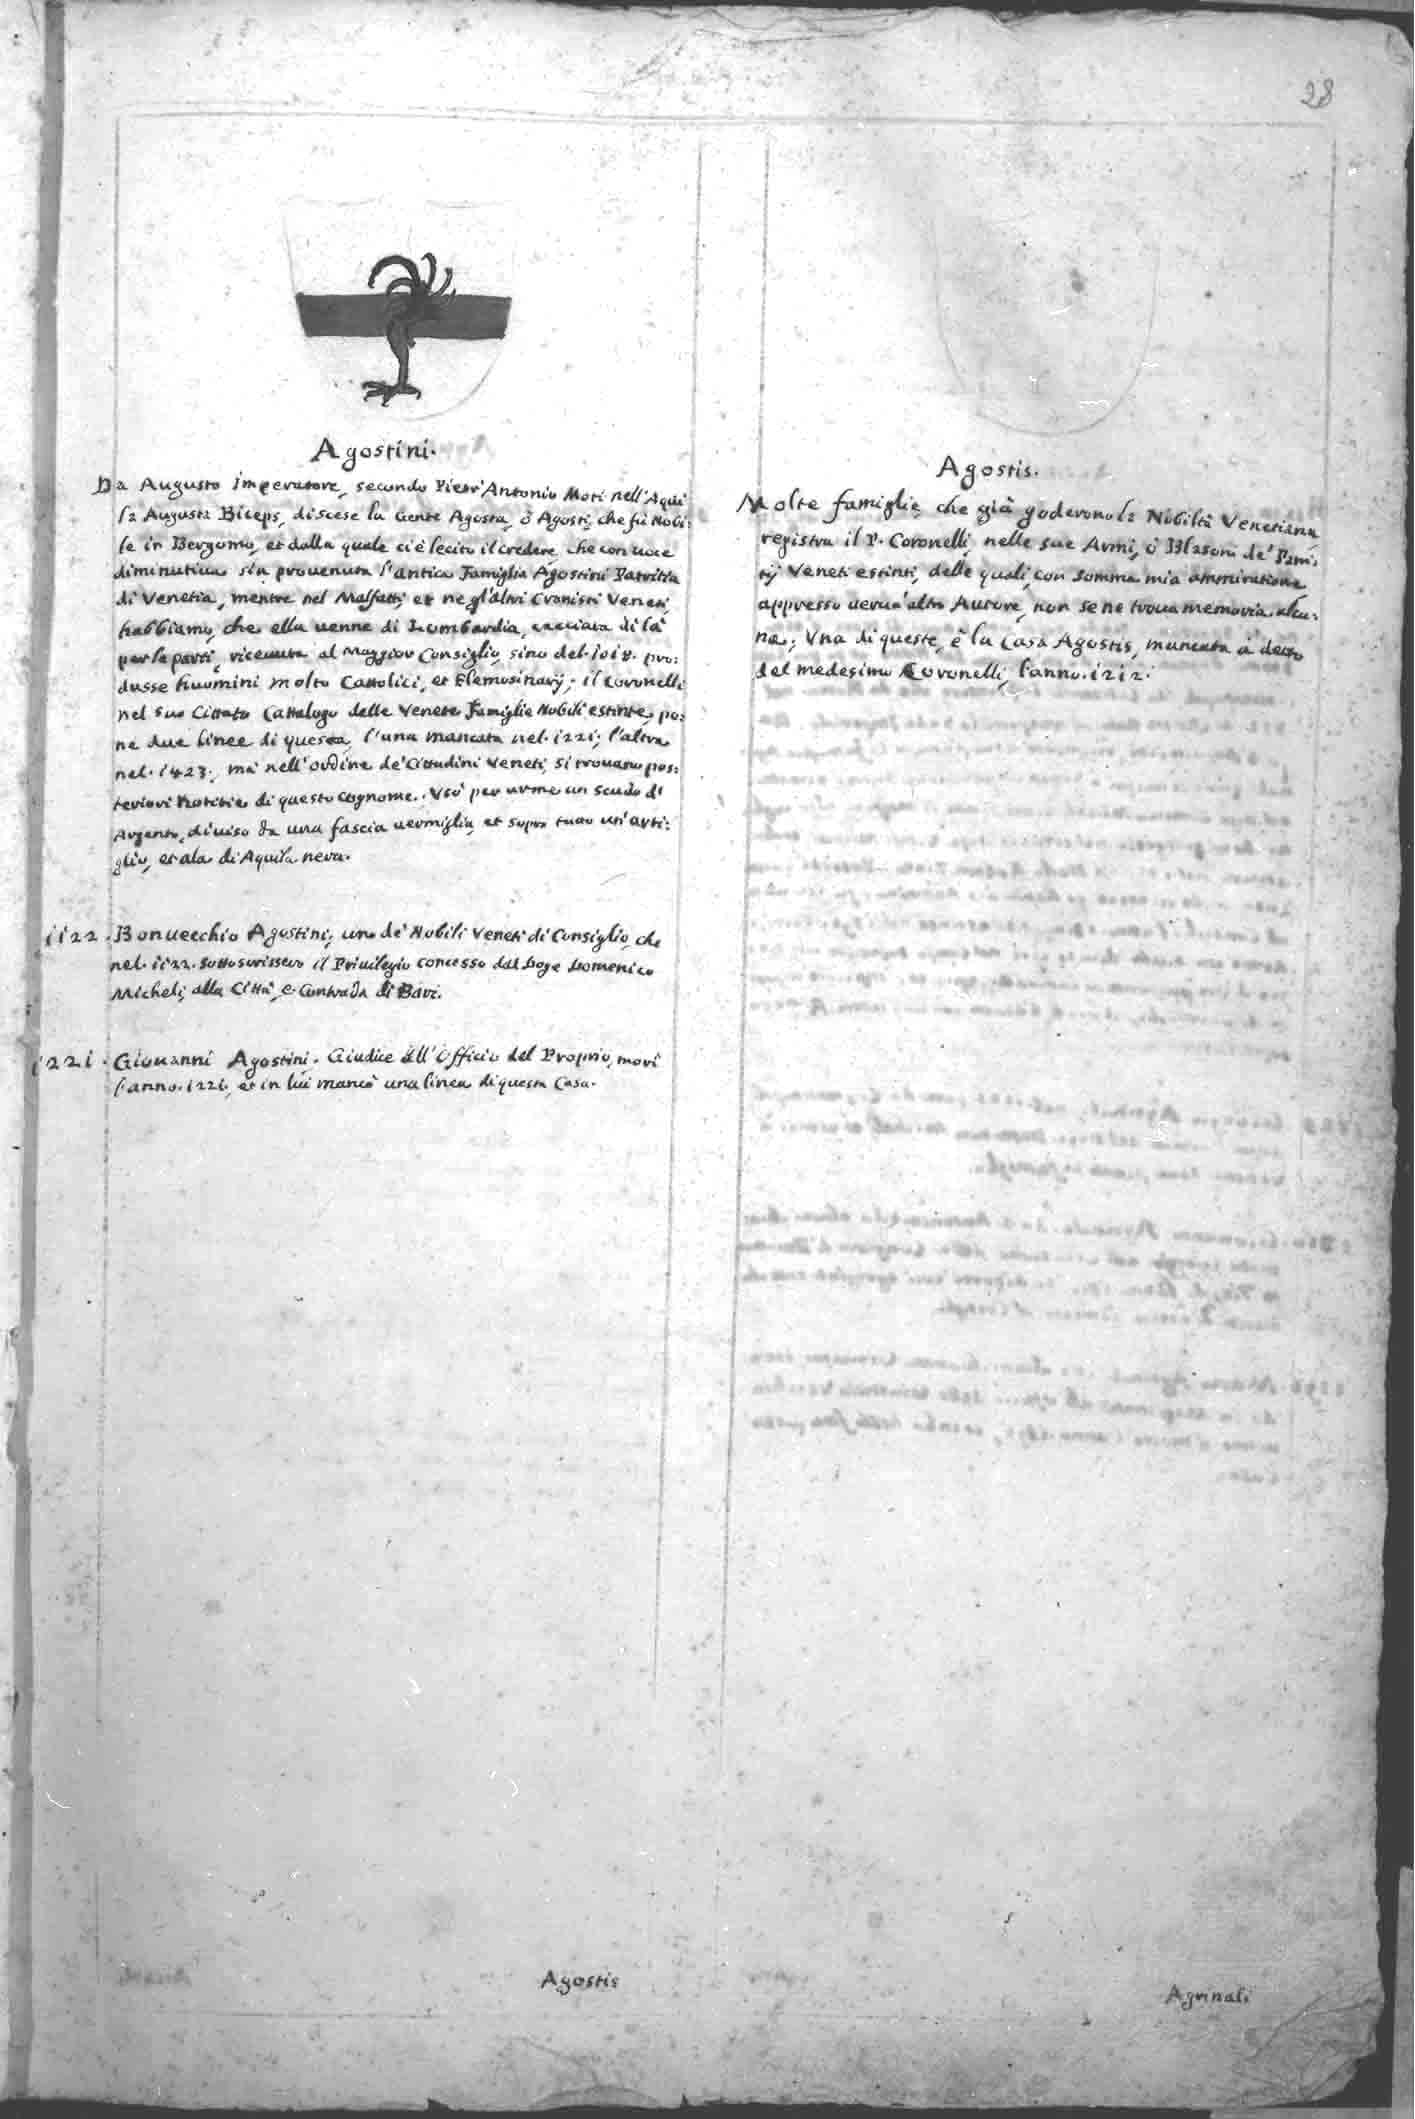 28
Agostini.
Da Augusto Imperatore, secondo Pietr'Antonio Moti nell'Aqui
la Augusta Biceps, discese la Gente Agosta, ò Agosti, che fù Nobi:
le in Bergomo, et dalla quale ci è lecito il credere, che con uoce
diminutiua sia prouenuta l'antica Famiglia Agostini Patritia
di Venetia, mentre nel Malfatti, et negl'altri Cronisti Veneti,
habbiamo, che ella uenne di Lombardia, cacciata di là
per le parti, riceuuta al Maggior Consiglio, sino del. 1018. pro:
dusse huomini molto Cattolici, et Elemosinarij; il Coronelli
nel suo Cittato Cattalogo delle Venete Famiglie Nobili estinte, po:
ne due linee di questa, l'una mancata nel. 1221; l'altra
nel. 1423., mà nell'ordine de' Cittadini Veneti, si trouano pos:
teriori Notitie di questo Cognome. Usò per arme un scudo d'
Argento, diuiso da una fascia uermiglia, et sopra tutto un'arti:
glio, et ala di Aquila nera.
1122. Bonuecchio Agostini, uno de' Nobili Veneti di Consiglio, che
nel. 1122. sottoscrissero il Priuilegio concesso dal Doge Domenico
Micheli, alla Città, e Contrada di Bari.
1221. Giouanni Agostini. Giudice all'Officio del Proprio, morì
l'anno. 1221, et in lui mancò una linea di questa Casa.
Agostis
Agostis.
Molte famiglie, che già goderono la Nobiltà Venetiana
registra il P. Coronelli, nelle sue Armi, ò Blasoni de' Patri,
tij Veneti estinti, delle quali, con somma mia ammiratione
appresso uerun'altro Autore, non se ne troua memoria alcu:
na; Una di queste, è la Casa Agostis, mancata à detto
del medesimo Coronelli, l'anno. 1212.
Agrinali